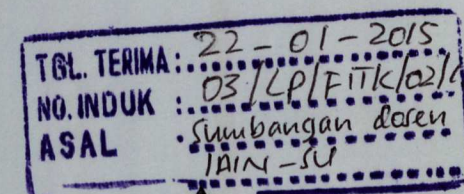 TGL. TERIMA : 22 - 01 - 2015
NO. INDUK : 03/LP/FITK/02/
ASAL : Sumbangan dosen
IAIN-SU